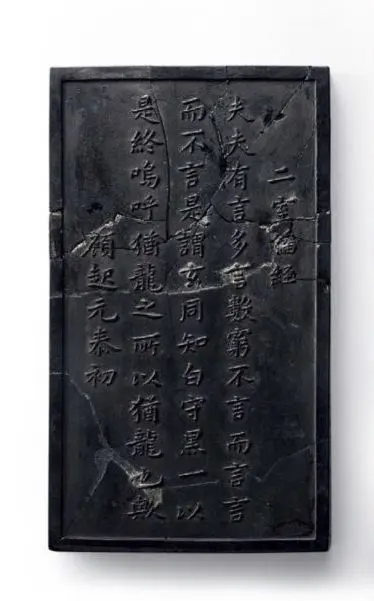 二室經
夫夫有言多言數窮不言而言言
而不言是謂玄同知白守黑一以
是終嗚呼猶龍之所以猶龍也歟
顧起元泰初